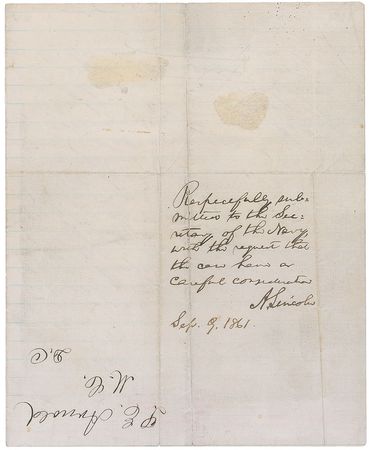 Respectfully sub=
mitted to the Sec=
retary of the Navy
with the request that
the case have a
careful consideration
A. Lincoln
Sep. 9. 1861.
E. Arnold
M. C.
D. C